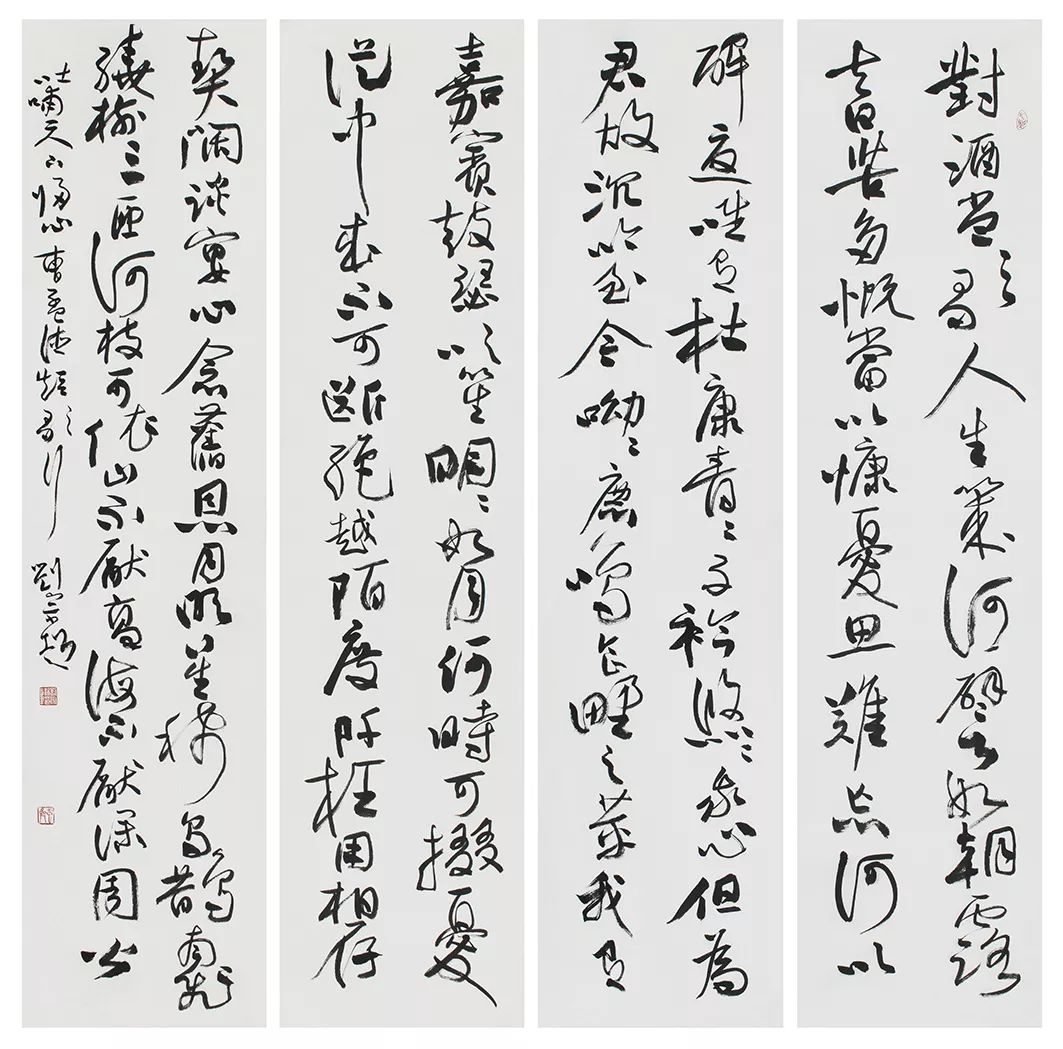 對酒當歌人生幾何譬如朝露
去日苦多慨當以慷憂思難忘何以
解憂唯有杜康青〻子衿悠〻我心但為
君故沉吟至今呦〻鹿鳴食野之苹我有
嘉賓鼓瑟吹笙明〻如月何時可掇憂
從中來不可斷絕越陌度阡枉用相存
契闊談宴心念舊恩月明星稀烏鵲南飛
繞樹三匝何枝可依山不厭高海不厭深周公
吐哺天下歸心 曹孟德短歌行 劉